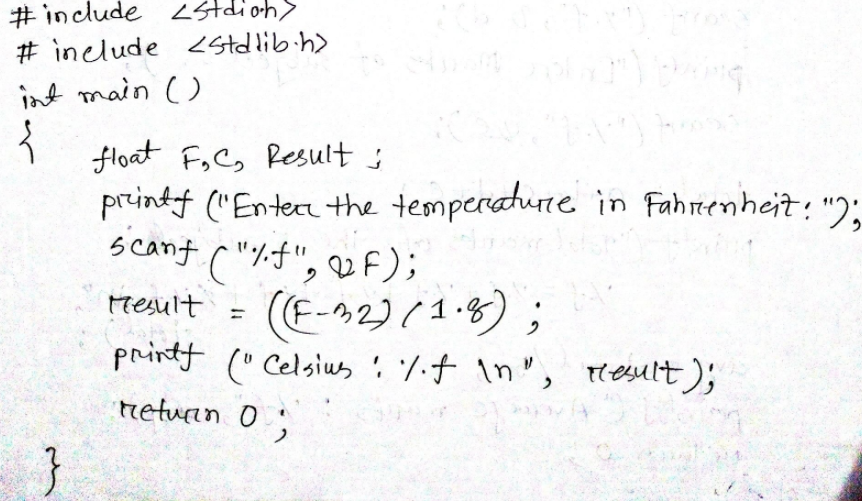 # include <stdio.h>
# include <stdlib.h>
int main ()
{
float F, C, Result ;
printf ("Enter the temperature in Fahrenheit: ");
scanf ("%f", &F);
result = ((F-32) / 1.8) ;
printf ("Celsius : %.f \n", result);
return 0 ;
}